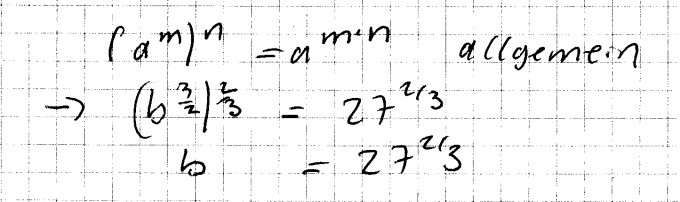 (a^m)^n = a^{m·n} allgemein
→ (b^{3/2})^{2/3} = 27^{2/3}
b = 27^{2/3}